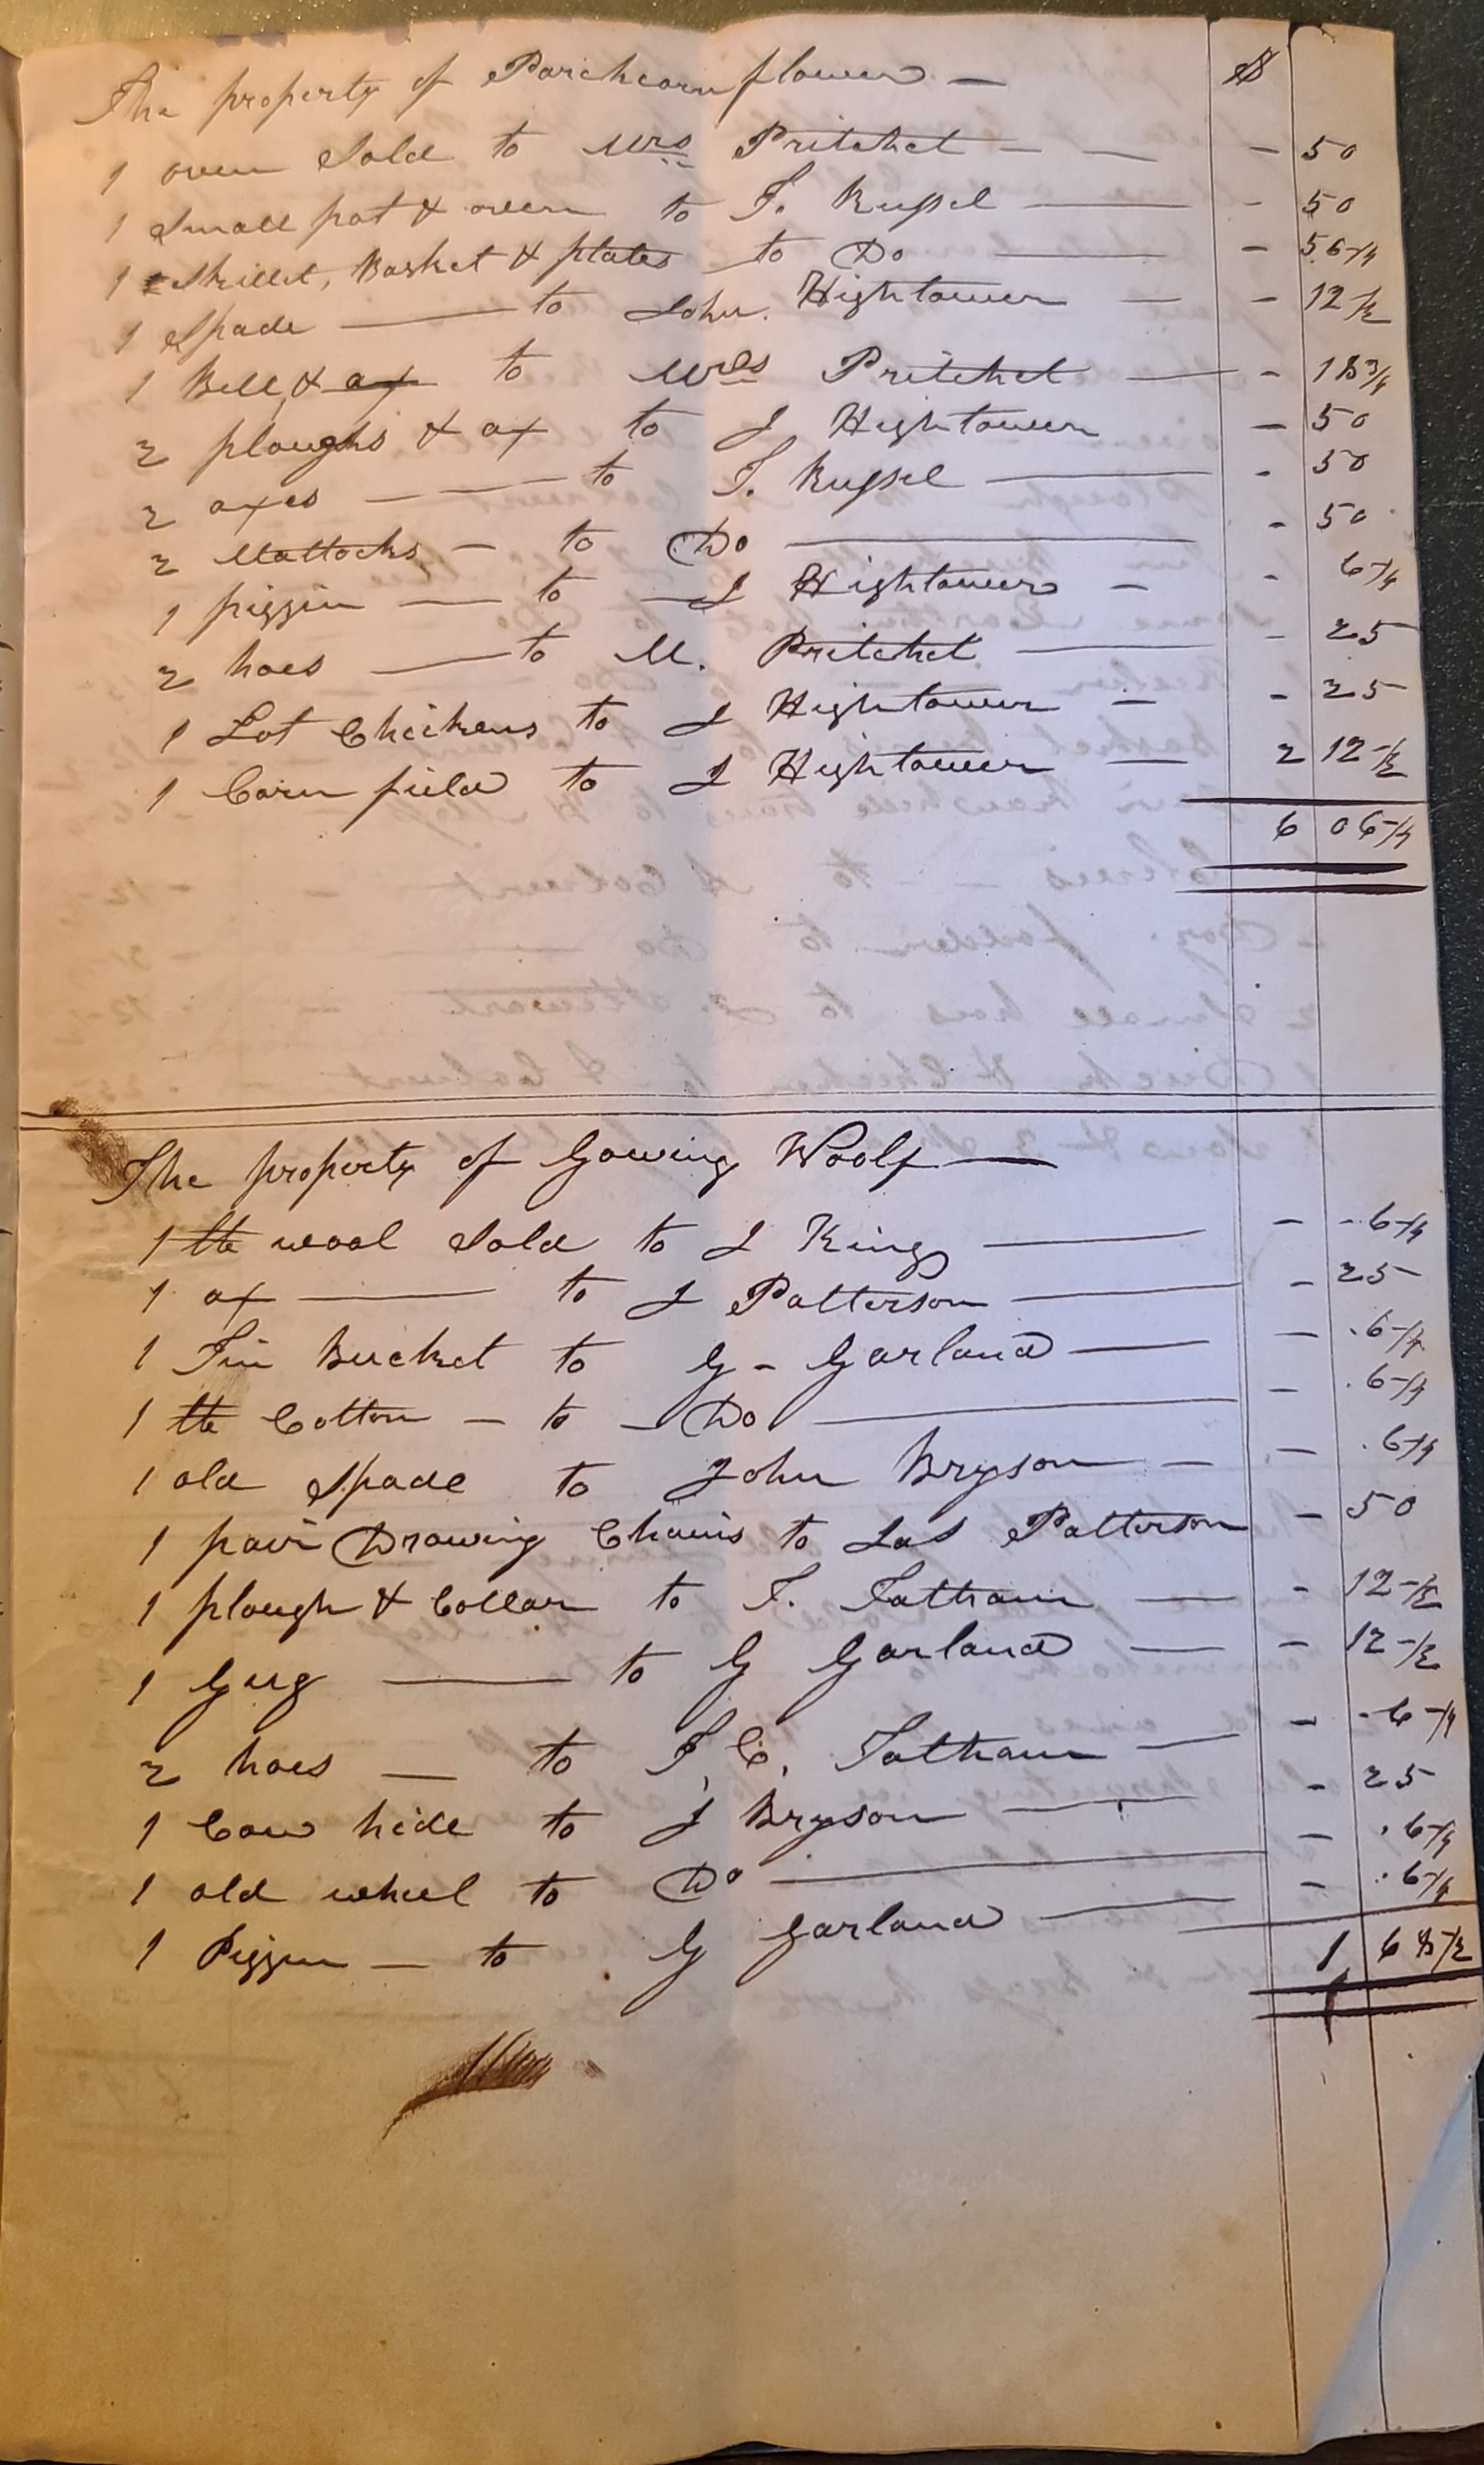 The property of Parchcornflower — $
1 oven Sold to Mrs Pritchet — — - 50
1 Small pot & oven to T. Russel — - 50
1 Skillet, Basket & plates to Do — - 56 1/4
1 Spade — to John Hightower — - 12 1/2
1 Bell & ax to Mrs Pritchet — - 18 3/4
2 ploughs & ax to J Hightower - 50
2 axes — to T. Russel — - 50
2 Mattocks — to Do — - 50
1 piggin — to J Hightower — - 6 1/4
2 hoes — to M. Pritchet — - 25
1 Lot Chickens to J Hightower — - 25
1 Corn field to J Hightower — 2 12 1/2
6 06 1/4
The property of Gowing Woolf —
1 lb wool Sold to J King — - 6 1/4
1 ax — to J Patterson — - 25
1 Tin Bucket to G - Garland — - 6 1/4
1 lb Cotton — to Do — - 6 1/4
1 old Spade to John Bryson — - 6 1/4
1 pair Drawing Chains to Jas Patterson - 50
1 plough & Collar to T. Tatham — - 12 1/2
1 Gug — to G Garland — - 12 1/2
2 hoes — to T, C, Tatham — - 6 1/4
1 Cow hide to J Bryson — - 25
1 old wheel to Do — - 6 1/4
1 Piggin — to G Garland — - 6 1/4
1 68 1/2